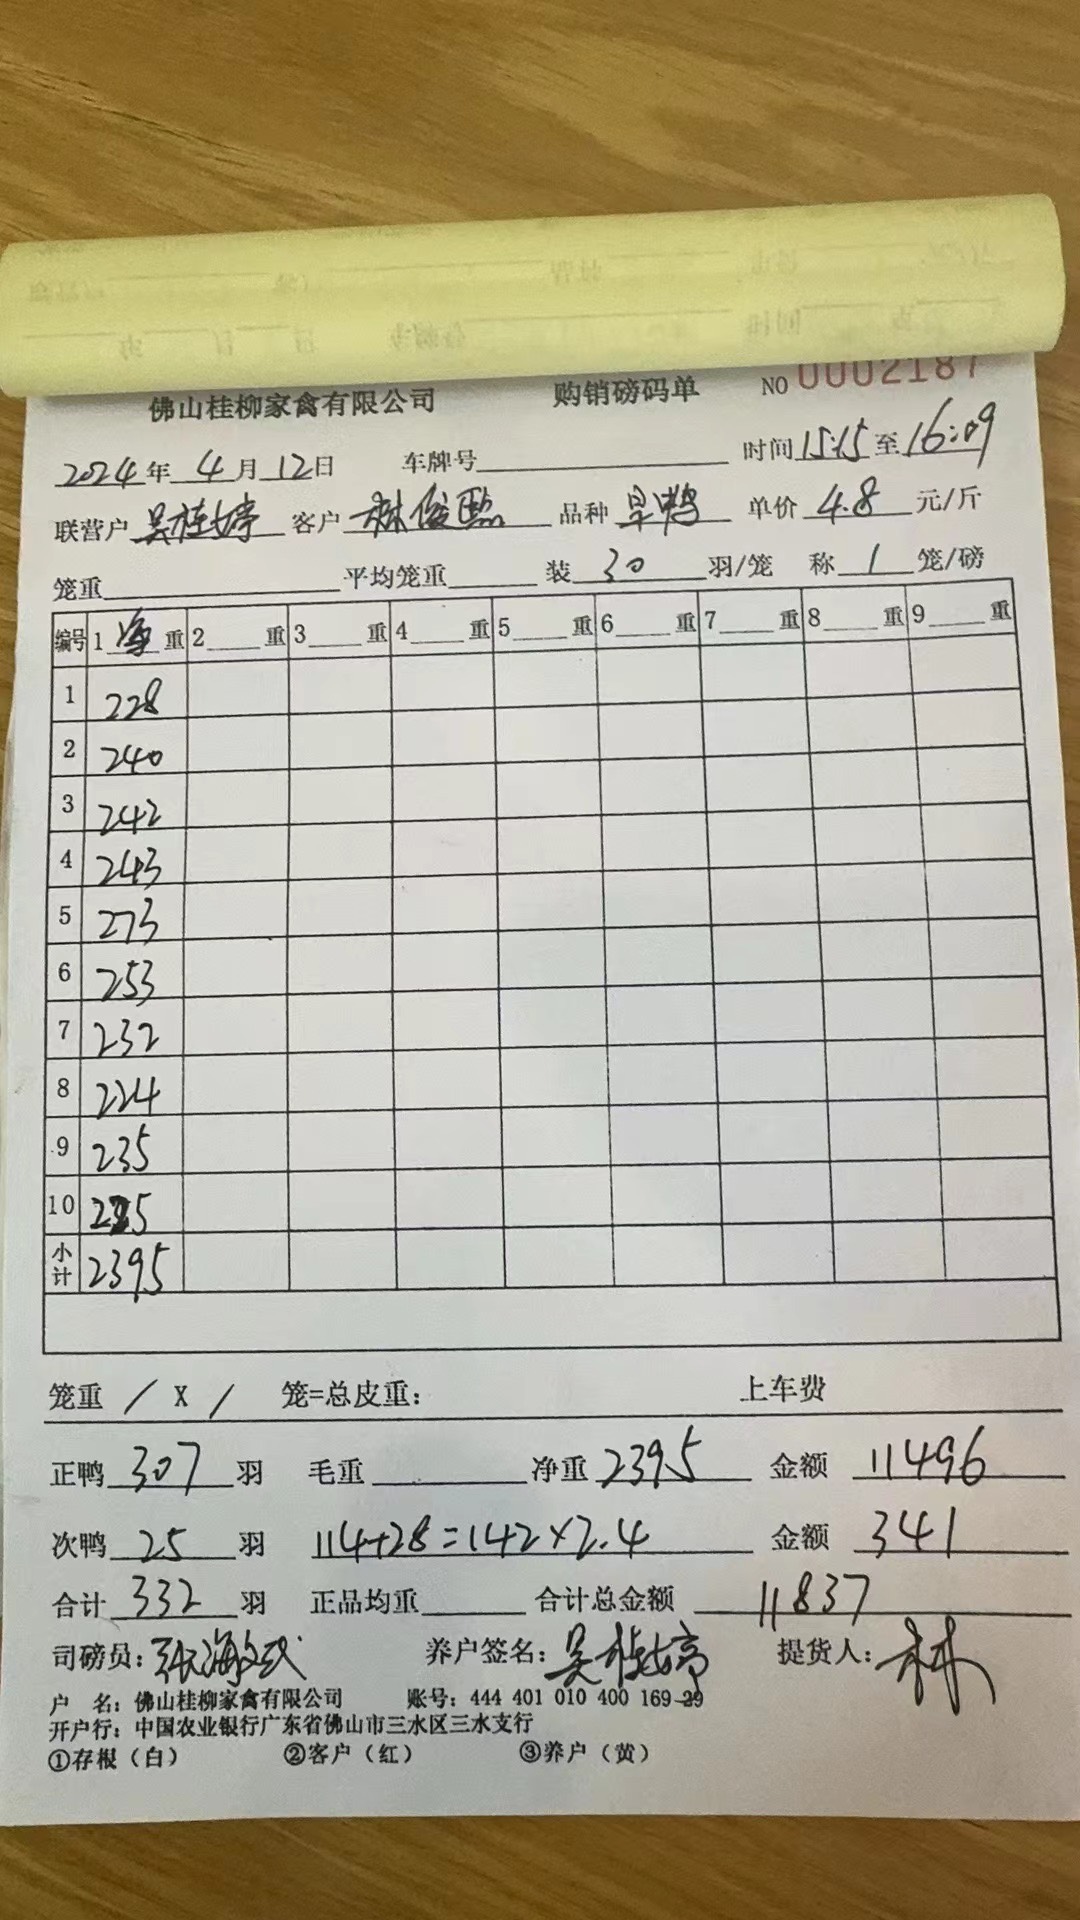 佛山桂柳家禽有限公司 购销磅码单 NO 0002187
2024年 4月12日 车牌号 时间15:15至16:09
联营户 吴桂婷 客户 林俊 品种 旱鸭 单价 4.8 元/斤
笼重 平均笼重 装 30 羽/笼 称 1 笼/磅
编号 1 净 重 2 重 3 重 4 重 5 重 6 重 7 重 8 重 9 重
1 228
2 240
3 242
4 243
5 273
6 253
7 232
8 224
9 235
10 225
小计 2395
笼重 / X / 笼=总皮重: 上车费
正鸭 307 羽 毛重 净重 2395 金额 11496
次鸭 25 羽 114+28=142×2.4 金额 341
合计 332 羽 正品均重 合计总金额 11837
司磅员: 张海 养户签名: 吴桂婷 提货人: 林
户 名: 佛山桂柳家禽有限公司 账号: 444 401 010 400 169 29
开户行: 中国农业银行广东省佛山市三水区三水支行
①存根(白) ②客户(红) ③养户(黄)